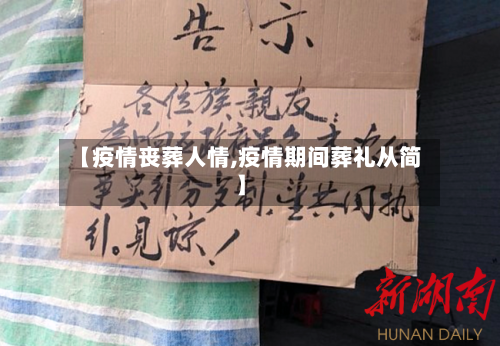 告示
各位族、亲友:
【疫情丧葬人情,疫情期间葬礼从简
】
事实引分多制,望共同执
引。见谅!
新湖南
HUNAN DAILY